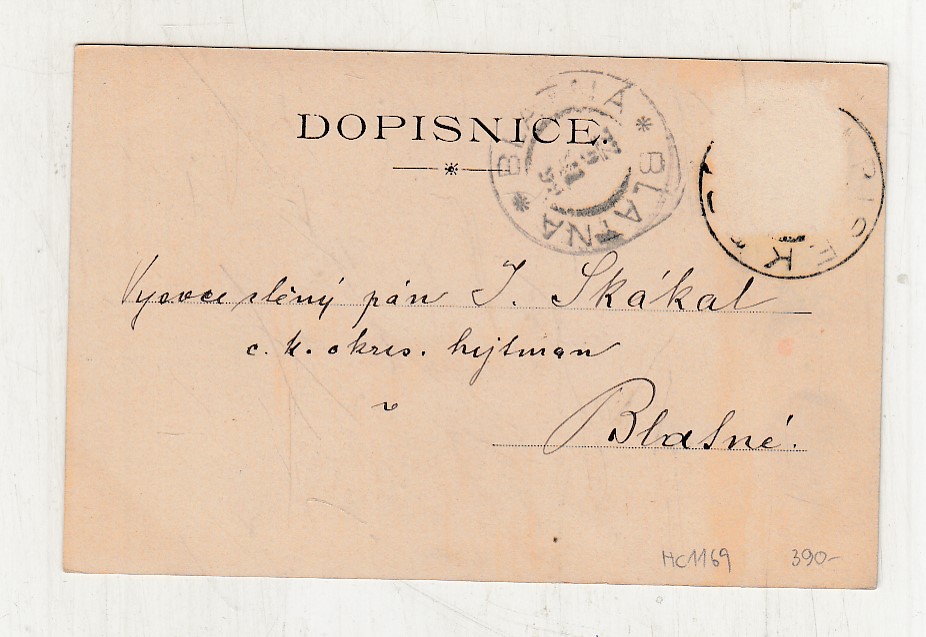 DOPISNICE.
BLATNÁ * BLATNA *
PISEK
Vysoce slěný pán J. Skákal
c. k. okres. hejtman
v
Blatné.
HC1169 390-